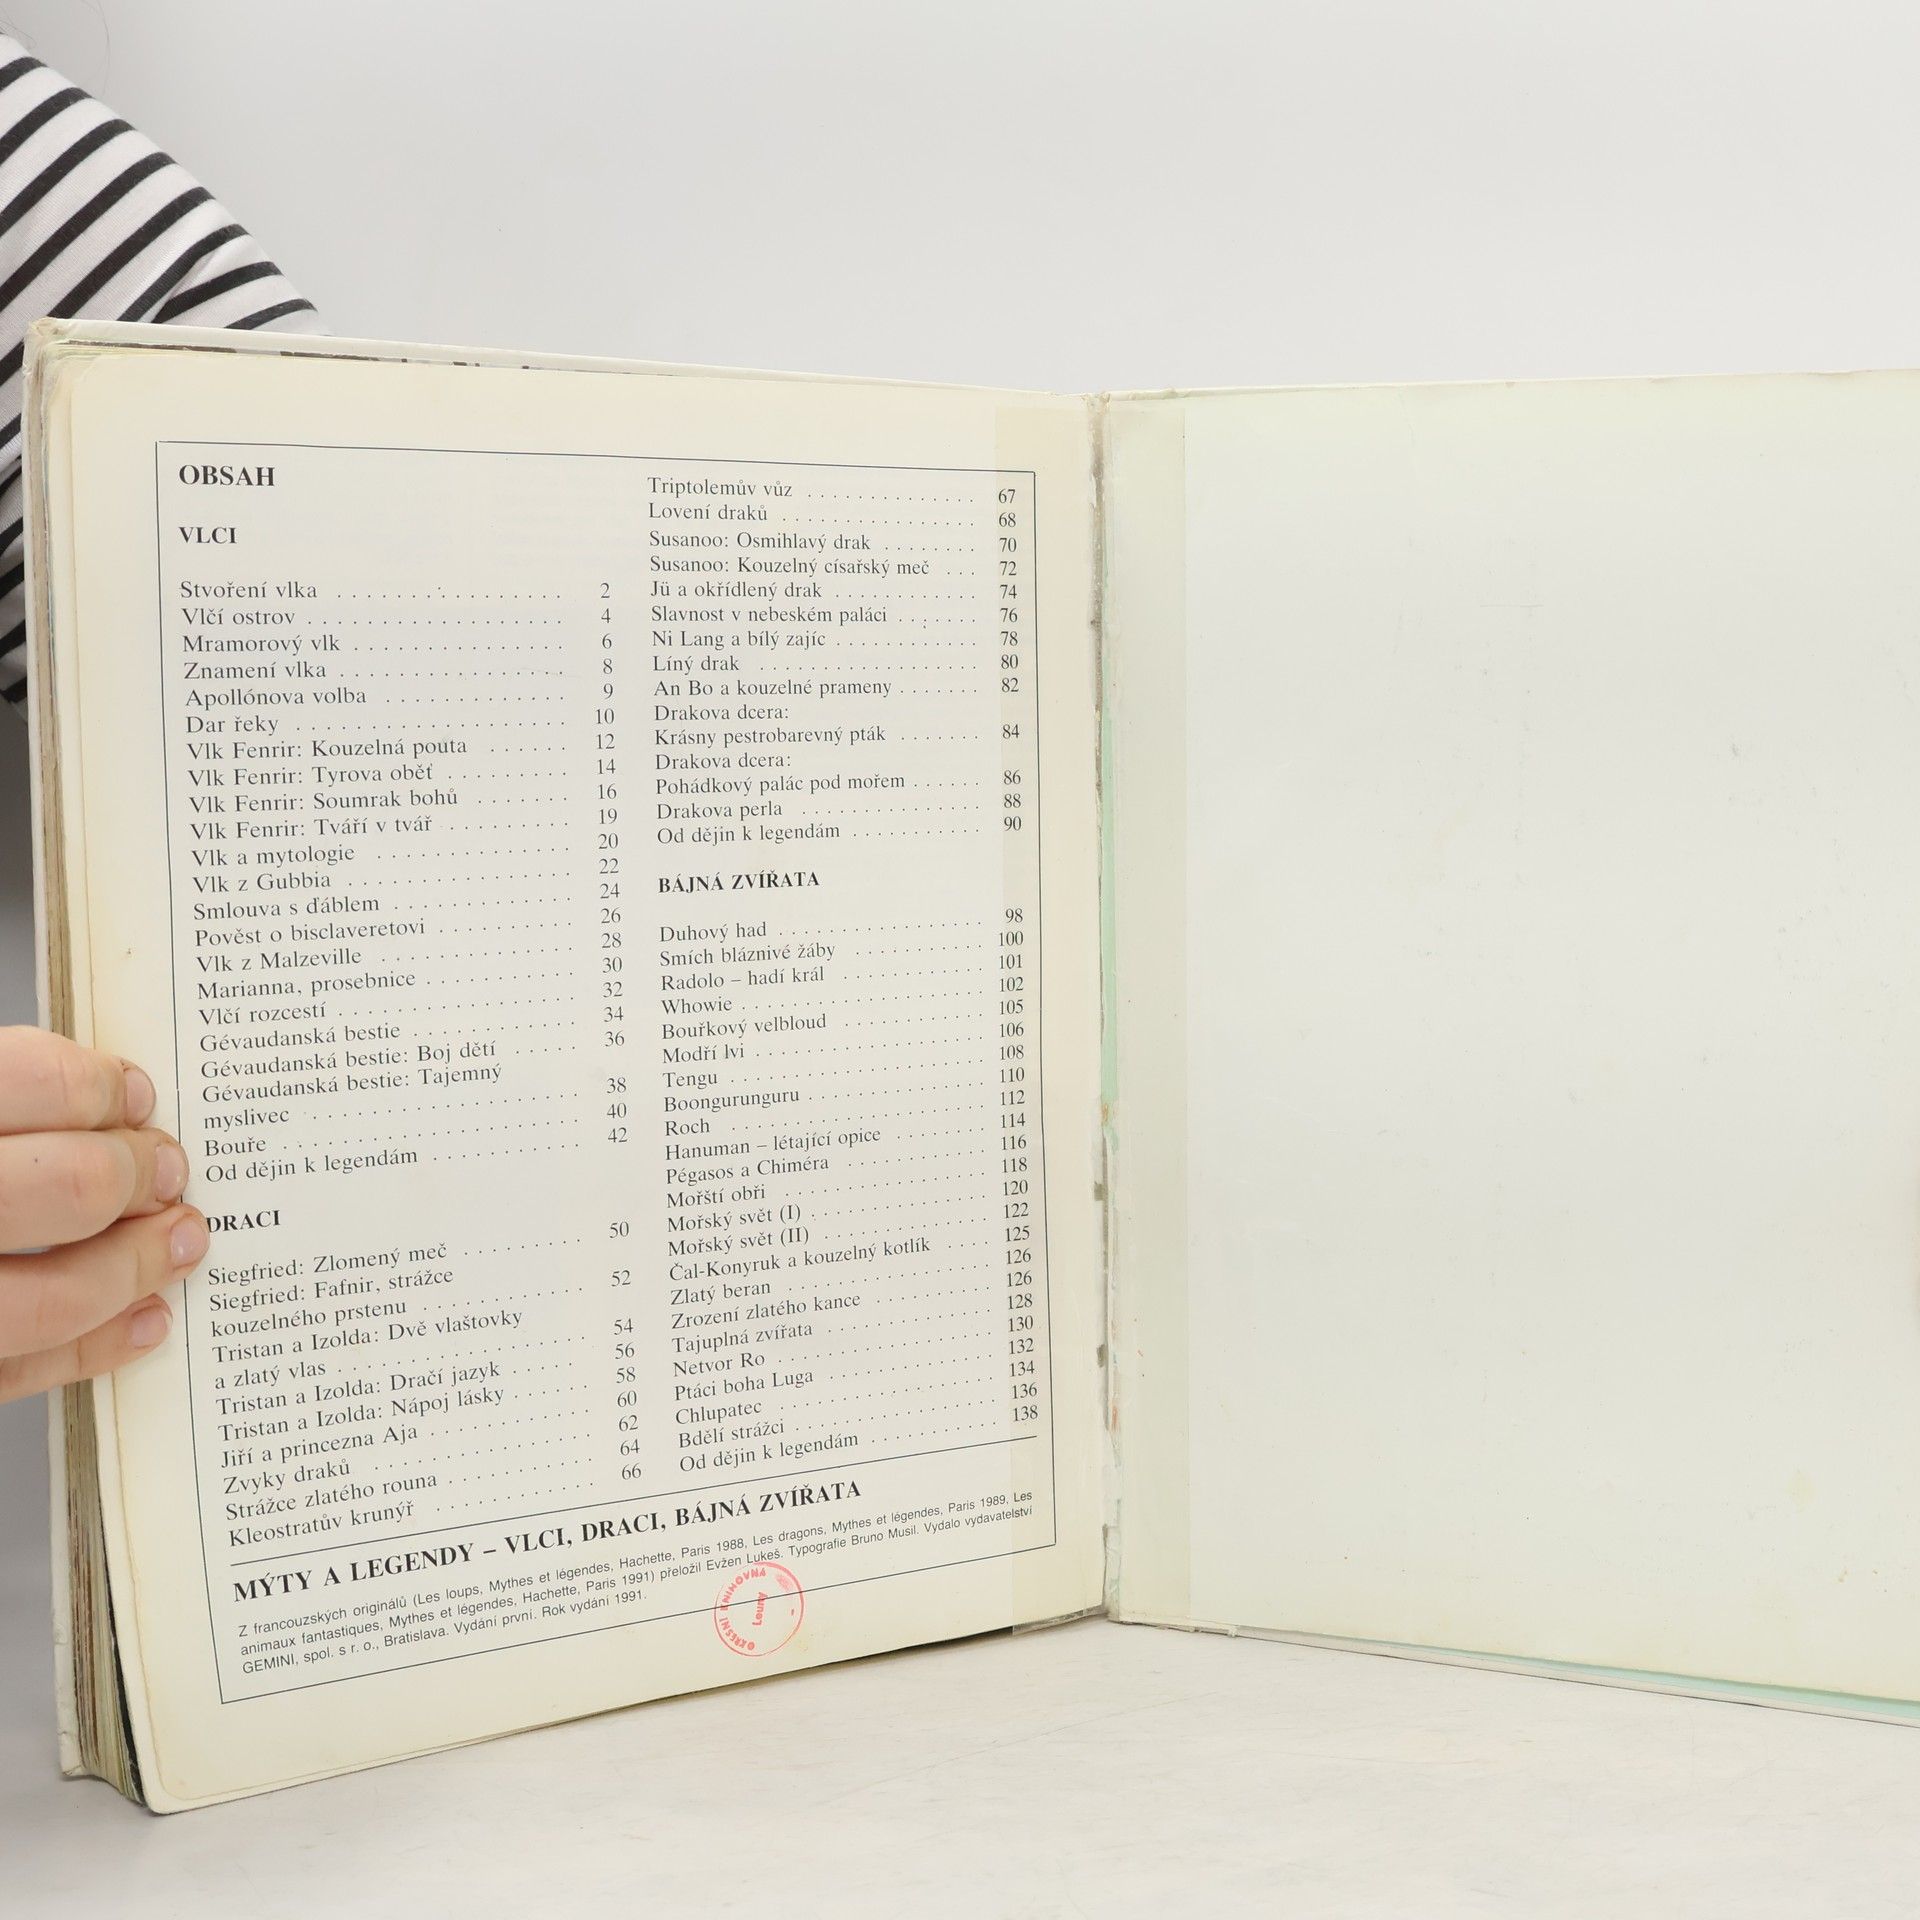 OBSAH
VLCI
Stvoření vlka . . . . . . . . . . . . . . . . 2
Vlčí ostrov . . . . . . . . . . . . . . . . . . 4
Mramorový vlk . . . . . . . . . . . . . . . 6
Znamení vlka . . . . . . . . . . . . . . . . 8
Apollónova volba . . . . . . . . . . . . . 9
Dar řeky . . . . . . . . . . . . . . . . . . . 10
Vlk Fenrir: Kouzelná pouta . . . . . . 12
Vlk Fenrir: Tyrova oběť . . . . . . . . . 14
Vlk Fenrir: Soumrak bohů . . . . . . . 16
Vlk Fenrir: Tváří v tvář . . . . . . . . . 19
Vlk a mytologie . . . . . . . . . . . . . . 20
Vlk z Gubbia . . . . . . . . . . . . . . . . 22
Smlouva s ďáblem . . . . . . . . . . . . . 24
Pověst o bisclaveretovi . . . . . . . . . . 26
Vlk z Malzeville . . . . . . . . . . . . . . 28
Marianna, prosebnice . . . . . . . . . . . 30
Vlčí rozcestí . . . . . . . . . . . . . . . . . 32
Gévaudanská bestie . . . . . . . . . . . . 34
Gévaudanská bestie: Boj dětí . . . . . 36
Gévaudanská bestie: Tajemný
myslivec . . . . . . . . . . . . . . . . . . . 38
Bouře . . . . . . . . . . . . . . . . . . . . . 40
Od dějin k legendám . . . . . . . . . . . 42
DRACI
Siegfried: Zlomený meč . . . . . . . . . 50
Siegfried: Fafnir, strážce
kouzelného prstenu . . . . . . . . . . . . 52
Tristan a Izolda: Dvě vlaštovky
a zlatý vlas . . . . . . . . . . . . . . . . . . 54
Tristan a Izolda: Dračí jazyk . . . . . 56
Tristan a Izolda: Nápoj lásky . . . . . . 58
Jiří a princezna Aja . . . . . . . . . . . . 60
Zvyky draků . . . . . . . . . . . . . . . . 62
Strážce zlatého rouna . . . . . . . . . . . 64
Kleostratův krunýř . . . . . . . . . . . . 66
Triptolemův vůz . . . . . . . . . . . . . . 67
Lovení draků . . . . . . . . . . . . . . . . 68
Susanoo: Osmihlavý drak . . . . . . . . 70
Susanoo: Kouzelný císařský meč . . . 72
Jü a okřídlený drak . . . . . . . . . . . . 74
Slavnost v nebeském paláci . . . . . . . 76
Ni Lang a bílý zajíc . . . . . . . . . . . . 78
Líný drak . . . . . . . . . . . . . . . . . . 80
An Bo a kouzelné prameny . . . . . . . 82
Drakova dcera:
Krásny pestrobarevný pták . . . . . . . 84
Drakova dcera:
Pohádkový palác pod mořem . . . . . . 86
Drakova perla . . . . . . . . . . . . . . . 88
Od dějin k legendám . . . . . . . . . . . 90
BÁJNÁ ZVÍŘATA
Duhový had . . . . . . . . . . . . . . . . . 98
Smích bláznivé žáby . . . . . . . . . . . 100
Radolo – hadí král . . . . . . . . . . . . 101
Whowie . . . . . . . . . . . . . . . . . . . . 102
Bouřkový velbloud . . . . . . . . . . . . 105
Modří lvi . . . . . . . . . . . . . . . . . . . 106
Tengu . . . . . . . . . . . . . . . . . . . . . 108
Boongurunguru . . . . . . . . . . . . . . . 110
Roch . . . . . . . . . . . . . . . . . . . . . 112
Hanuman – létající opice . . . . . . . . 114
Pégasos a Chiméra . . . . . . . . . . . . 116
Mořští obři . . . . . . . . . . . . . . . . . 118
Mořský svět (I) . . . . . . . . . . . . . . . 120
Mořský svět (II) . . . . . . . . . . . . . . 122
Čal-Konyruk a kouzelný kotlík . . . . 125
Zlatý beran . . . . . . . . . . . . . . . . . 126
Zrození zlatého kance . . . . . . . . . . 126
Tajuplná zvířata . . . . . . . . . . . . . . 128
Netvor Ro . . . . . . . . . . . . . . . . . . 130
Ptáci boha Luga . . . . . . . . . . . . . . 132
Chlupatec . . . . . . . . . . . . . . . . . . 134
Bdělí strážci . . . . . . . . . . . . . . . . . 136
Od dějin k legendám . . . . . . . . . . . 138
MÝTY A LEGENDY – VLCI, DRACI, BÁJNÁ ZVÍŘATA
Z francouzských originálů (Les loups, Mythes et légendes, Hachette, Paris 1988, Les dragons, Mythes et légendes, Paris 1989, Les
animaux fantastiques, Mythes et légendes, Hachette, Paris 1991) přeložil Evžen Lukeš. Typografie Bruno Musil. Vydalo vydavatelství
GEMINI, spol. s r. o., Bratislava. Vydání první. Rok vydání 1991.
OKRESNÍ KNIHOVNA
Louny